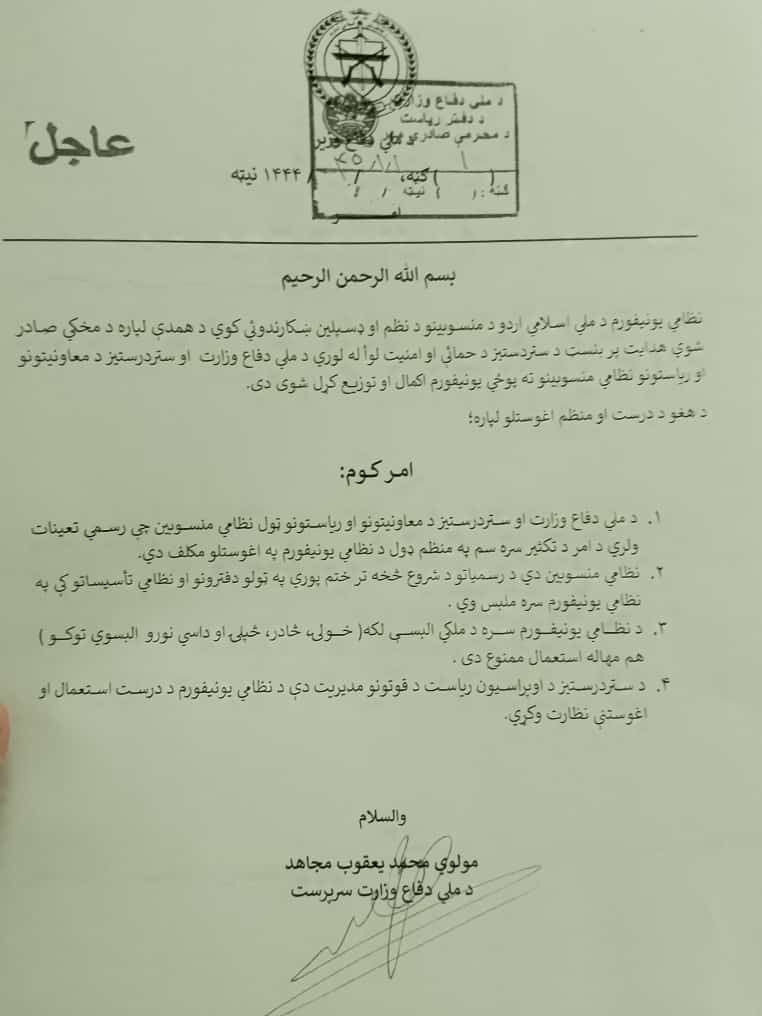 عاجل
د ملي دفاع وزارت
د دفتر ریاست
د محرمې صادرې
د ملي دفاع وزیر
ګڼه،
۱۴۴۴ نیټه
ګڼه: ( ) نیټه / /
امـــــــر
بسم الله الرحمن الرحیم
نظامي یونیفورم د ملي اسلامي اردو د منسوبینو د نظم او ډسپلین ښکارندوئي کوي د همدې لپاره د مخکې صادر
شوي هدایت پر بنسټ د ستردستیز د حمائې او امنیت لوأ له لوري د ملي دفاع وزارت او ستردرستیز د معاونیتونو
او ریاستونو نظامي منسوبینو ته پوځي یونیفورم اکمال او توزیع کړل شوی دی.
د هغو د درست او منظم اغوستلو لپاره؛
امر کوم:
۱. د ملي دفاع وزارت او ستردرستیز د معاونیتونو او ریاستونو ټول نظامي منسوبین چې رسمي تعینات
ولري د امر د تکثیر سره سم په منظم ډول د نظامي یونیفورم په اغوستلو مکلف دي.
۲. نظامي منسوبین دي د رسمیاتو د شروع څخه تر ختم پوري په ټولو دفترونو او نظامي تأسیساتو کې په
نظامي یونیفورم سره ملبس وي .
۳. د نظامي یونیفورم سره د ملکي البسې لکه( خولۍ، څادر، څپلۍ او داسې نورو البسوي توکو )
هم مهاله استعمال ممنوع دی .
۴. د ستردرستیز د اوپراسیون ریاست د قوتونو مدیریت دې د نظامي یونیفورم د درست استعمال او
اغوستنې نظارت وکړي.
والسلام
مولوي محمد یعقوب مجاهد
د ملي دفاع وزارت سرپرست